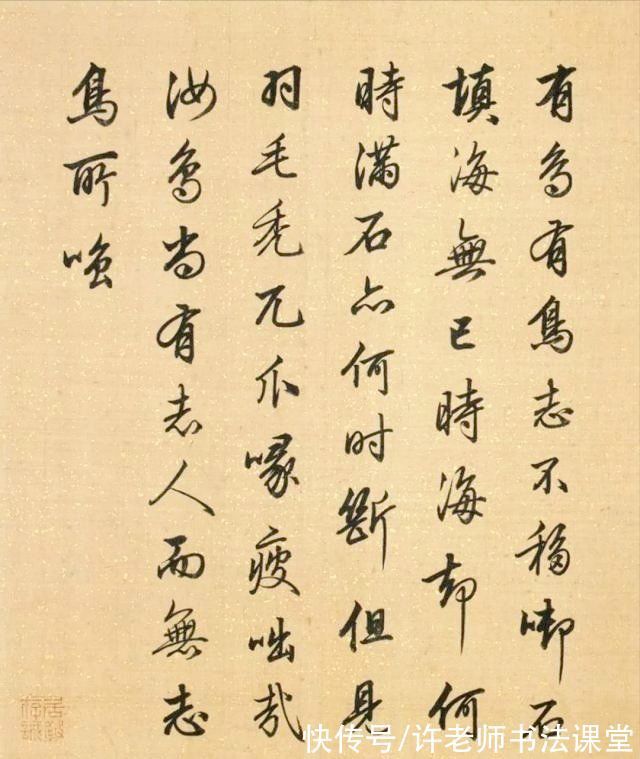 有鳥有鳥志不移啣石
填海無已時海却何
時滿石亦何时斷但見
羽毛秃兀爪喙疲咄哉
汝鳥尚有志人而無志
鳥所嗤
快传号/许老师书法课堂